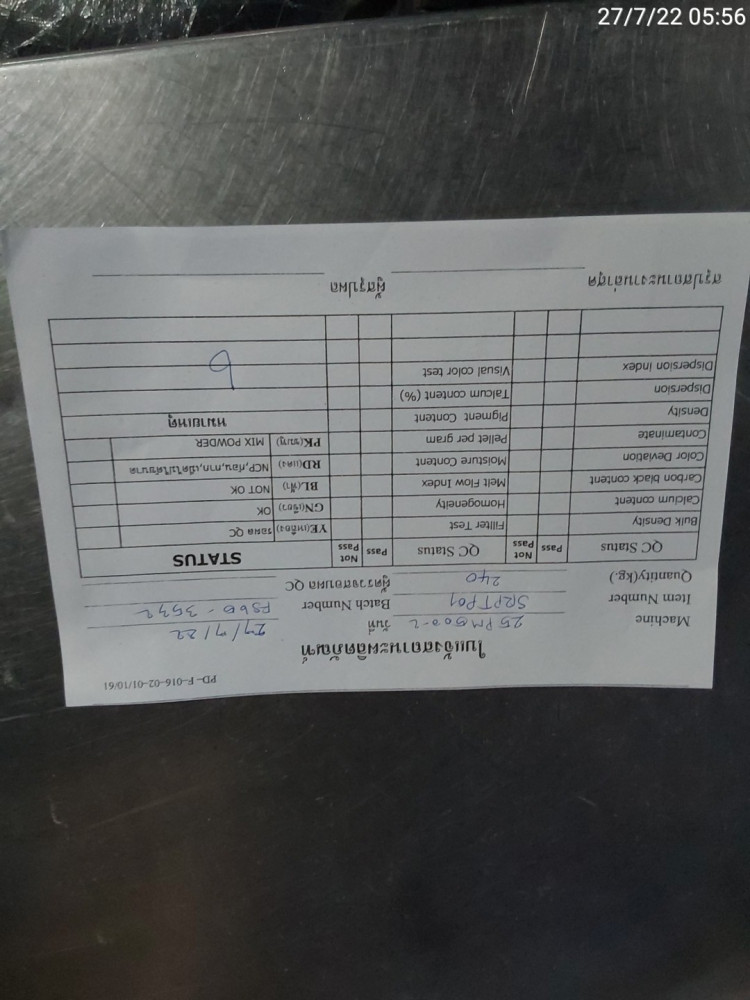 27/7/22 05:56
PD-F-016-02-01/10/61
ใบแจ้งสถานะผลิตภัณฑ์
Machine 25PM500-2 วันที่ 27/7/22
Item Number SRPTP01 Batch Number FS60-3532
Quantity(kg.) 240 ผู้ตรวจสอบผล QC
QC Status Pass Not Pass QC Status Pass Not Pass STATUS
Bulk Density Fillter Test YE(เหลือง) รอผล QC
Calcium content Homogeneity GN(เขียว) OK
Carbon black content Melt Flow Index BL(ฟ้า) NOT OK
Color Deviation Moisture Content RD(แดง) NCP,ก้อน,กาก,เม็ดไม่ได้ขนาด
Contaminate Pellet per gram PK(ชมพู) MIX POWDER
Density Pigment Content หมายเหตุ
Dispersion Talcum content (%)
Dispersion Index Visual color test 6
สรุปสถานะงานล่าสุด ผู้สรุปผล